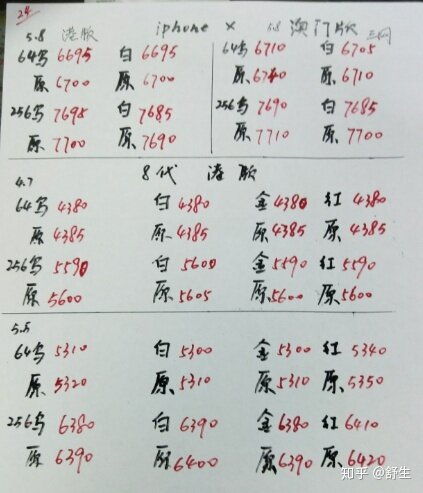 24
5.8 港版 iphone X 5.8 澳门版 三网
64乌 6695 白 6695 64乌 6710 白 6705
原 6700 原 6700 原 6740 原 6710
256乌 7695 白 7685 256乌 7690 白 7685
原 7700 原 7690 原 7710 原 7700
4.7 8代 港版
64乌 4380 白 4380 金 4380 红 4380
原 4385 原 4385 原 4385 原 4385
256乌 5590 白 5600 金 5590 红 5590
原 5600 原 5605 原 5600 原 5600
5.5
64乌 5310 白 5300 金 5300 红 5340
原 5320 原 5310 原 5310 原 5350
256乌 6380 白 6390 金 6380 红 6410
原 6390 原 6400 原 6390 原 6420
知乎 @舒生